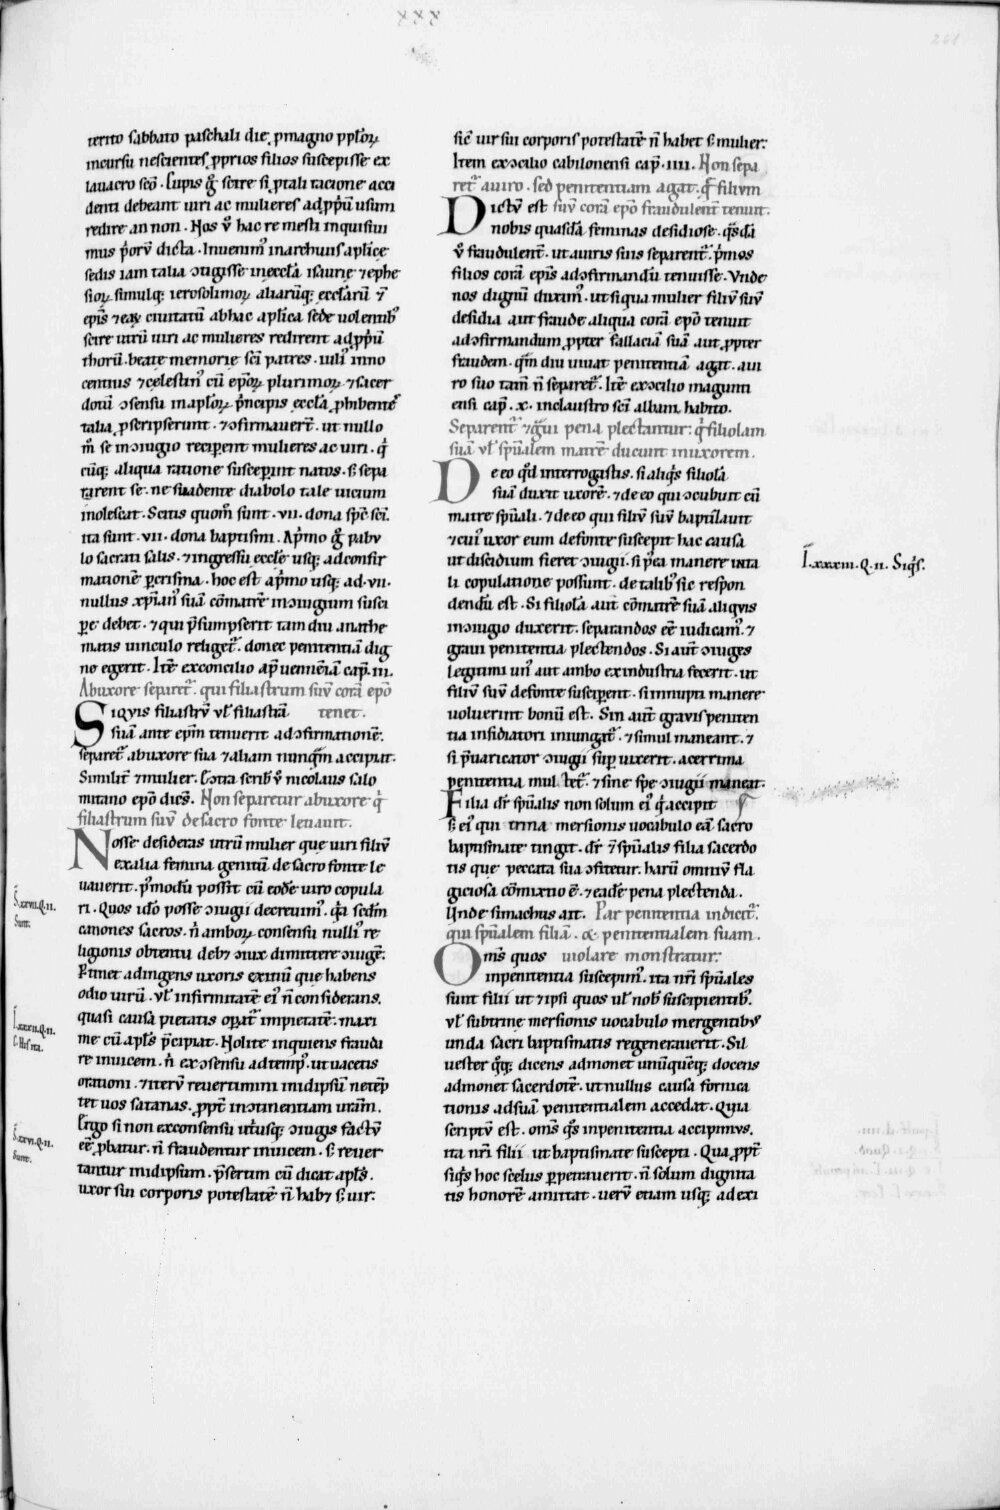 xxx
261
terito sabbato paschali die, ꝑmagno ppl̃oꝝ
incursu nescientes ꝓprios filios suscepisse ex
lauacro sc̄o. Cupis g̊ scire si ꝓtali racione acci
denti debeant uiri ac mulieres adꝓp̃ũ usum
redire an non. Nos ũ hac re mesti inquisiui
mus p̃orũ dicta. Inuenim᷒ inarchiuis aplice
sedis iam talia ↄtigisse inecclã isaurie ⁊ ephe
sioꝝ simulq; ierosolimoꝝ aliarũq; ecclarũ ⁊
ep̃is ⁊ eaꝝ ciuitatũ abhac aplica sede uolentib᷒
scire utrũ uiri ac mulieres redirent adꝓp̃ũ
thorũ. beate memorie sc̃i patres. iuli᷒ inno
centius ⁊ celestin᷒ cũ ep̃oꝝ plurimoꝝ ⁊ sacer
dotũ ↄsensu inapl̃oꝝ p̃ncipis ecclã ꝓhibentes
talia ꝓscripserunt. ⁊ ↄfirmauer̃t. ut nullo
m̃ se inↄiugio reciperent mulieres ac uiri. q̃
cũq; aliqua ratione susceperint natos. s; sepa
rarent se. ne suadente diabolo tale uicium
inolescat. Scitis quom̃ sunt. vii. dona sp̃c sc̃i.
ita sunt. vii. dona baptismi. Ap̃mo g̊ pabu
lo sacrati salis. ⁊ ingressu eccl̃e usq; adconfir
mationē ꝑcrisma. hoc est ap̃mo usq; ad. vii.
nullus xp̃ian᷒ suã cõmatrē inↄiugium susci
pe debet. ⁊ qui p̃sumpserit tam diu anathe
matis uinculo religet᷑. donec penitentiã dig
ne egerit. Itē exconcilio ap̃ uermeriã cap̃. iii.
Abuxore separet᷑. qui filiastrum suũ corã ep̃o
Siquis filiastrũ uł filiastrã tenet.
suã ante ep̃m tenuerit adↄfirmationē.
separet᷑ abuxore sua ⁊ aliam nunq̃m accipiat.
Similit̃ ⁊ mulier. Cõtra scrib̃ ũ nicolaus salo
mitano ep̃o dicẽs. Non separetur abuxore q̃
filiastrum suũ desacro fonte leuauit.
Nosse desideras utrũ mulier que uiri filiũ
exalia femina genitũ desacro fonte le
uauerit. p̃modũ possit cũ eodē uiro copula
ri. Quos id̃o posse ↄiugii decreuim᷒. q̃a sedm̃
canones sacros. ñ amboꝝ consensu nulli᷒ re
ligionis obtentu deb; ↄiux dimittere ↄiugē.
Pertinet adingens uxoris exitiũ que habens
odio uirũ. uł infirmitatē ei᷒ ñ considerans.
quasi causa pietatis operat᷑ impietatē. maxi
me cũ apl̃s p̃cipiat. Nolite inquiens fraudu
re inuicem. ñ exↄsensu adtemp᷒. ut uacetis
orationi. ⁊ iterũ reuertimini inidipsũ ne tēp
tet uos satanas. ꝓpt̃ inↄtinentiam ur̃am.
Ergo si non exconsensu utriusq; ↄiugis factũ
eē ꝓbatur. ñ fraudentur inuicem. s; reuer
tantur inidipsum. p̃sertim cũ dicat apl̃s.
uxor sui corporis potestatē ñ hab; s; uir.
S̄. xxvii. Q. ii.
Sunt.
L̄. xxxii. Q. ii.
C. His ita.
S̄. xxvi. Q. ii.
Sunt.
sic̃ uir sui corporis potestatē ñ habet s; mulier.
Item exↄcilio cabilonensi cap̃. iiii. Non sepa
ret᷑ auiro. sed penitentiam agat. q̃ filium
Dictũ est suũ corã ep̃o fraudulent̃ tenuit.
nobis quasdã feminas desidiose. q̃sdã
ũ fraudulent̃. ut auiris suis separent᷑. p̃prios
filios corã ep̃is adↄfirmandũ tenuisse. Vnde
nos dignũ duxim᷒. ut siqua mulier filiũ suũ
desidia aut fraude aliqua corã ep̃o tenuit
adↄfirmandum ꝓpter fallaciã suã aut ꝓpter
fraudem. q̃m diu uiuat penitentiã agat. aui
ro suo tam̃ ñ separet᷑. Itē exↄcilio magunti
ensi cap̃. x. inclaustro sc̃i albani habito.
Separent᷑ ⁊ g̃ui pena plectantur. q̃ filiolam
suã uł sp̃ualem matrē ducunt inuxorem.
De eo q̃d interrogastis. si aliq̃s filiolã
suã duxit uxorē. ⁊ de eo qui ↄcubuit cũ
matre sp̃uali. ⁊ de eo qui filiũ suũ baptizauit
⁊ cui᷒ uxor eum defonte suscepit hac causa
ut discidium fieret ↄiugii. si p̃ea manere inta
li copulatione possunt. de talib᷒ sic respon
dendũ est. Si filiolã aut cõmatrē suã aliquis
inↄiugio duxerit. separandos eē iudicam᷒. ⁊
graui penitentia plectendos. Si aut̃ ↄiuges
legitimi un᷒ aut ambo ex industria fecerit. ut
filiũ suũ defonte susciperent. si innupti manere
uoluerint bonũ est. Sin aut̃ grauis peniten
tia insidiatori iniungat᷑. ⁊ simul maneant. ⁊
si p̃uaricator ↄiugii supuixerit. acerrima
penitentia multet᷑. ⁊ sine spe ↄiugii maneat.
Filia dr̃ sp̃ualis non solum ei᷒ q̃ accipit
s; ei᷒ qui trina mersionis uocabulo eã sacro
baptismate tingit. dr̃ ⁊ sp̃ualis filia sacerdo
tis que peccata sua ↄfitetur. harũ omniũ fla
giciosa cõmixtio ē. ⁊ eadē pena plectenda.
Unde simachus ait. Par penitentia indicit᷑.
qui sp̃ualem filiã. & penitentialem suam.
Om̃s quos uiolare monstratur.
inpenitentia suscepim᷒. ita nr̃i sp̃uales
sunt filii ut ⁊ ipsi quos uł nob̃ suscipientib᷒.
uł subtrine mersionis uocabulo mergentib᷒
unda sacri baptismatis regenerauerit. Sil
uester q̊q; dicens admonet unũquēq; docens
admonet sacerdotē. ut nullus causa fornica
tionis adsuã penitentialem accedat. Quia
scriptũ est. om̃s q̃s inpenitentia accipimus.
ita nr̃i filii ut baptismate suscepti. Qua ꝓpt̃
siq̃s hoc scelus ꝑpetrauerit. ñ solum dignita
tis honorē amittat. uerũ etiam usq; ad exi
L̄. xxxiii. Q. ii. Siq̃s.